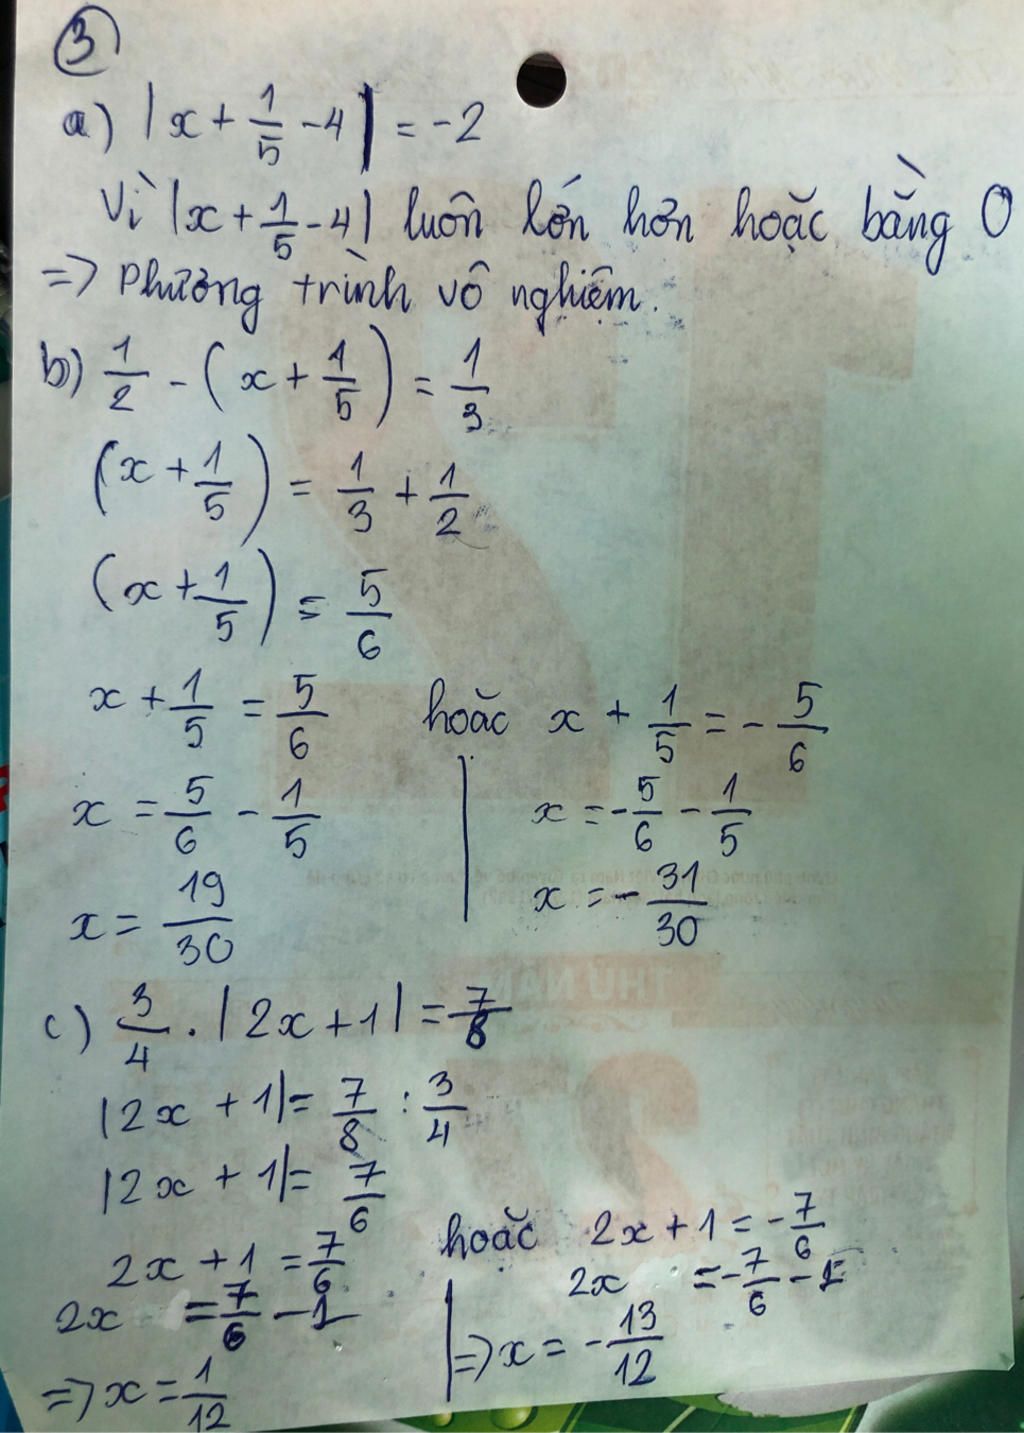 3
a) |x + 1/5 - 4| = -2
Vì |x + 1/5 - 4| luôn lớn hơn hoặc bằng 0
=> Phương trình vô nghiệm.
b) 1/2 - (x + 1/5) = 1/3
(x + 1/5) = 1/3 + 1/2
(x + 1/5) = 5/6
x + 1/5 = 5/6 hoăc x + 1/5 = - 5/6
x = 5/6 - 1/5 x = - 5/6 - 1/5
x = 19/30 x = - 31/30
THU NAM
c) 3/4 . |2x + 1| = 7/8
|2x + 1| = 7/8 : 3/4
|2x + 1| = 7/6
2x + 1 = 7/6 hoăc 2x + 1 = - 7/6
2x = 7/6 - 1 2x = - 7/6 - 1
=> x = 1/12 => x = - 13/12